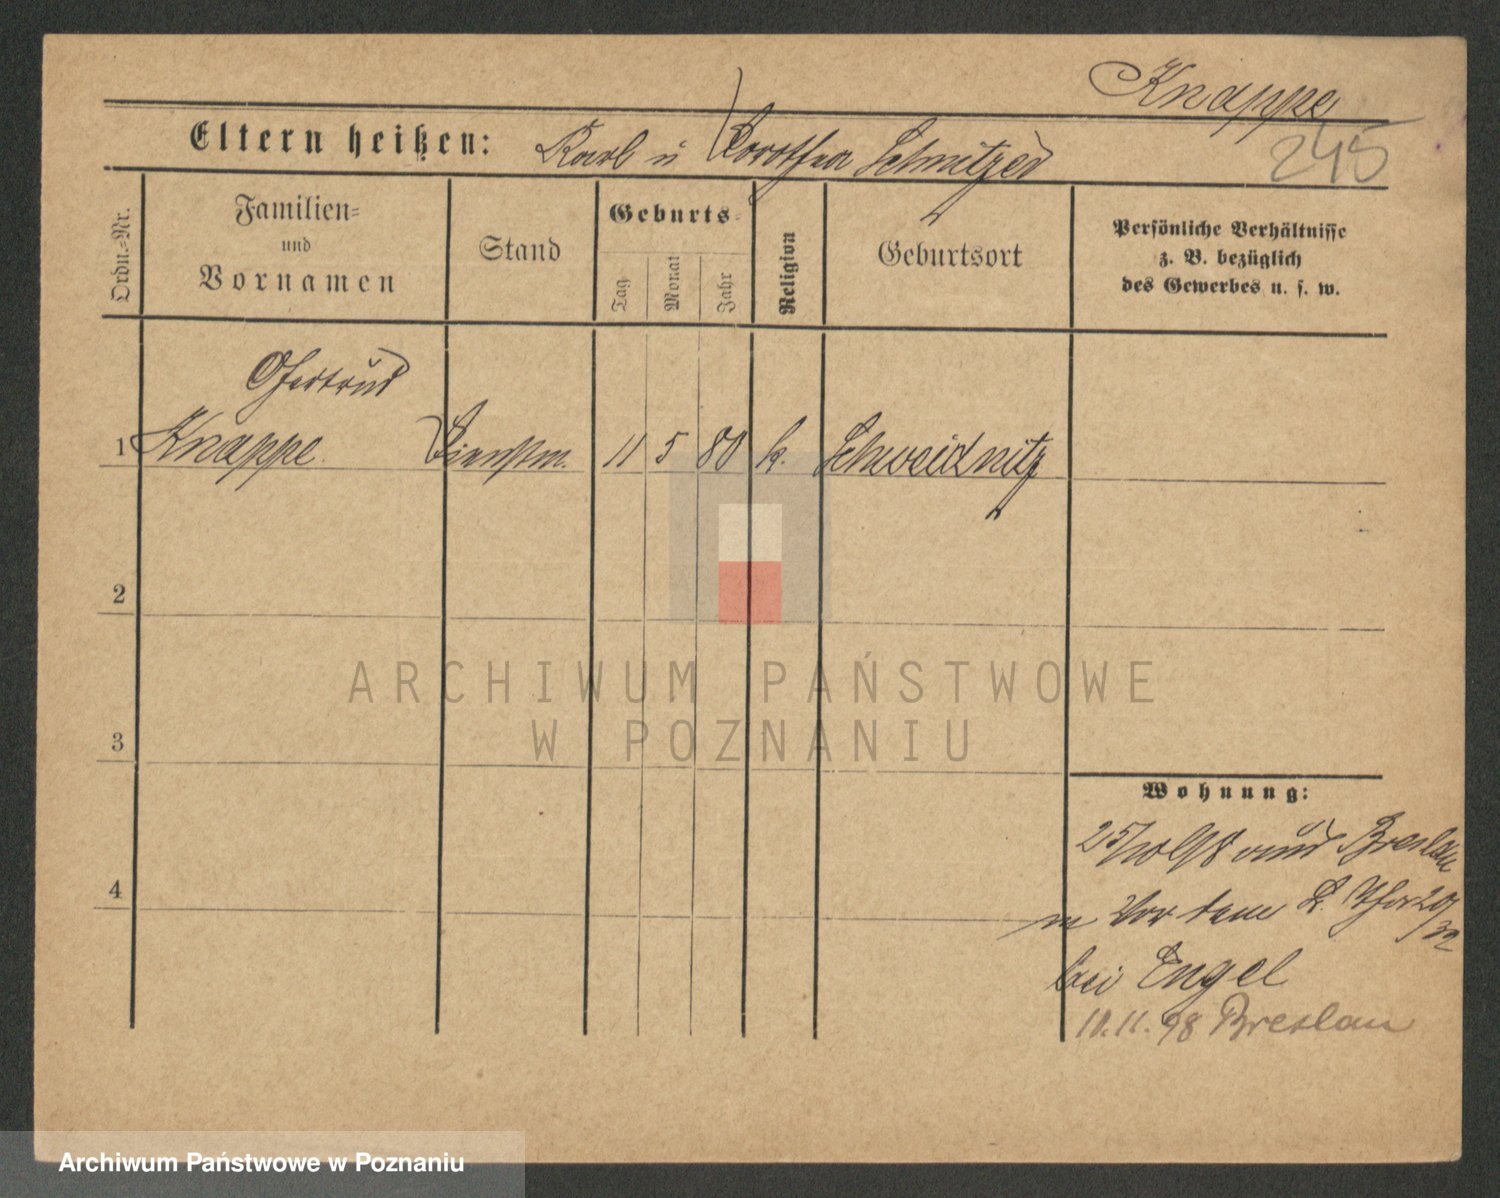 Knappe
245
Eltern heißen: Karl u Dorothea Schnitzer
Ordn.-Nr.
Familien-
und
Vornamen
Stand
Geburts-
Tag
Monat
Jahr
Religion
Geburtsort
Persönliche Verhältnisse
z. B. bezüglich
des Gewerbes u. s. w.
Gertrud
1 Knappe Dienstm. 11 5 80 k. Schweidnitz
2
3
4
ARCHIWUM PAŃSTWOWE
W POZNANIU
Wohnung:
25/10 98 Breslau
Vor dem
bei Engel
10.11.98 Breslau
Archiwum Państwowe w Poznaniu